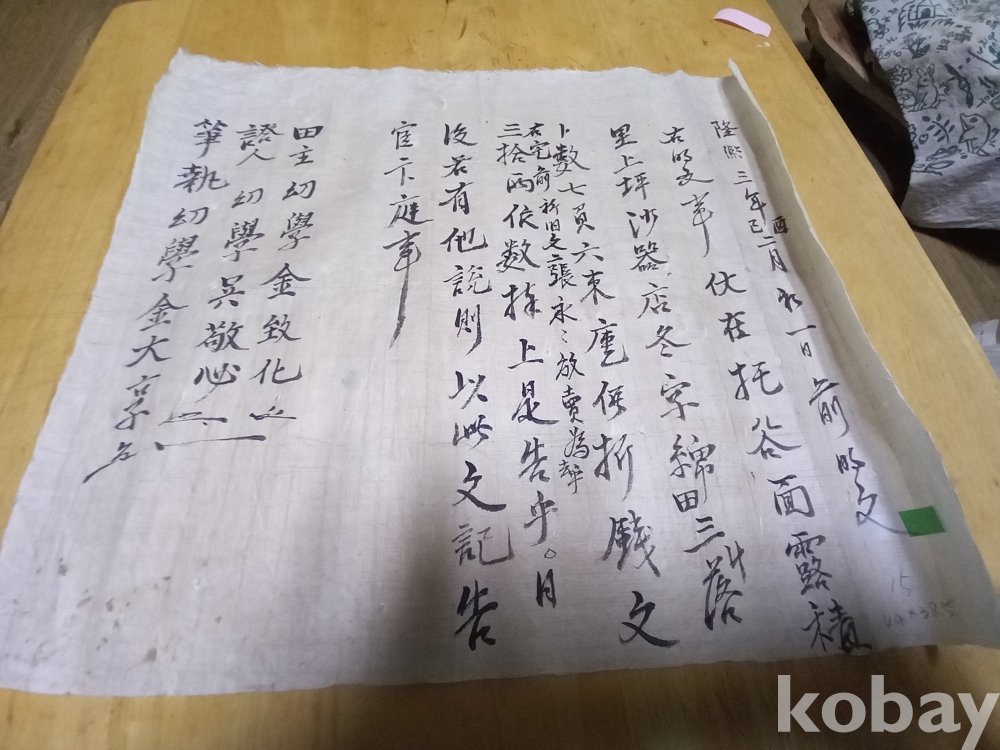 隆熙三年己酉二月初一日前明文
右明文事伏在托谷面露積
里上坪沙器店冬字綿田三斗落
卜數七負六束庫価折錢文
三拾兩依數捧上是
右宅前折旧文二張永永放賣為乎
告乎。日
後若有他說則以此文記告
官卞庭事
田主幼學金致化
證人幼學吳敬必
筆執幼學金大亨
15
kobay